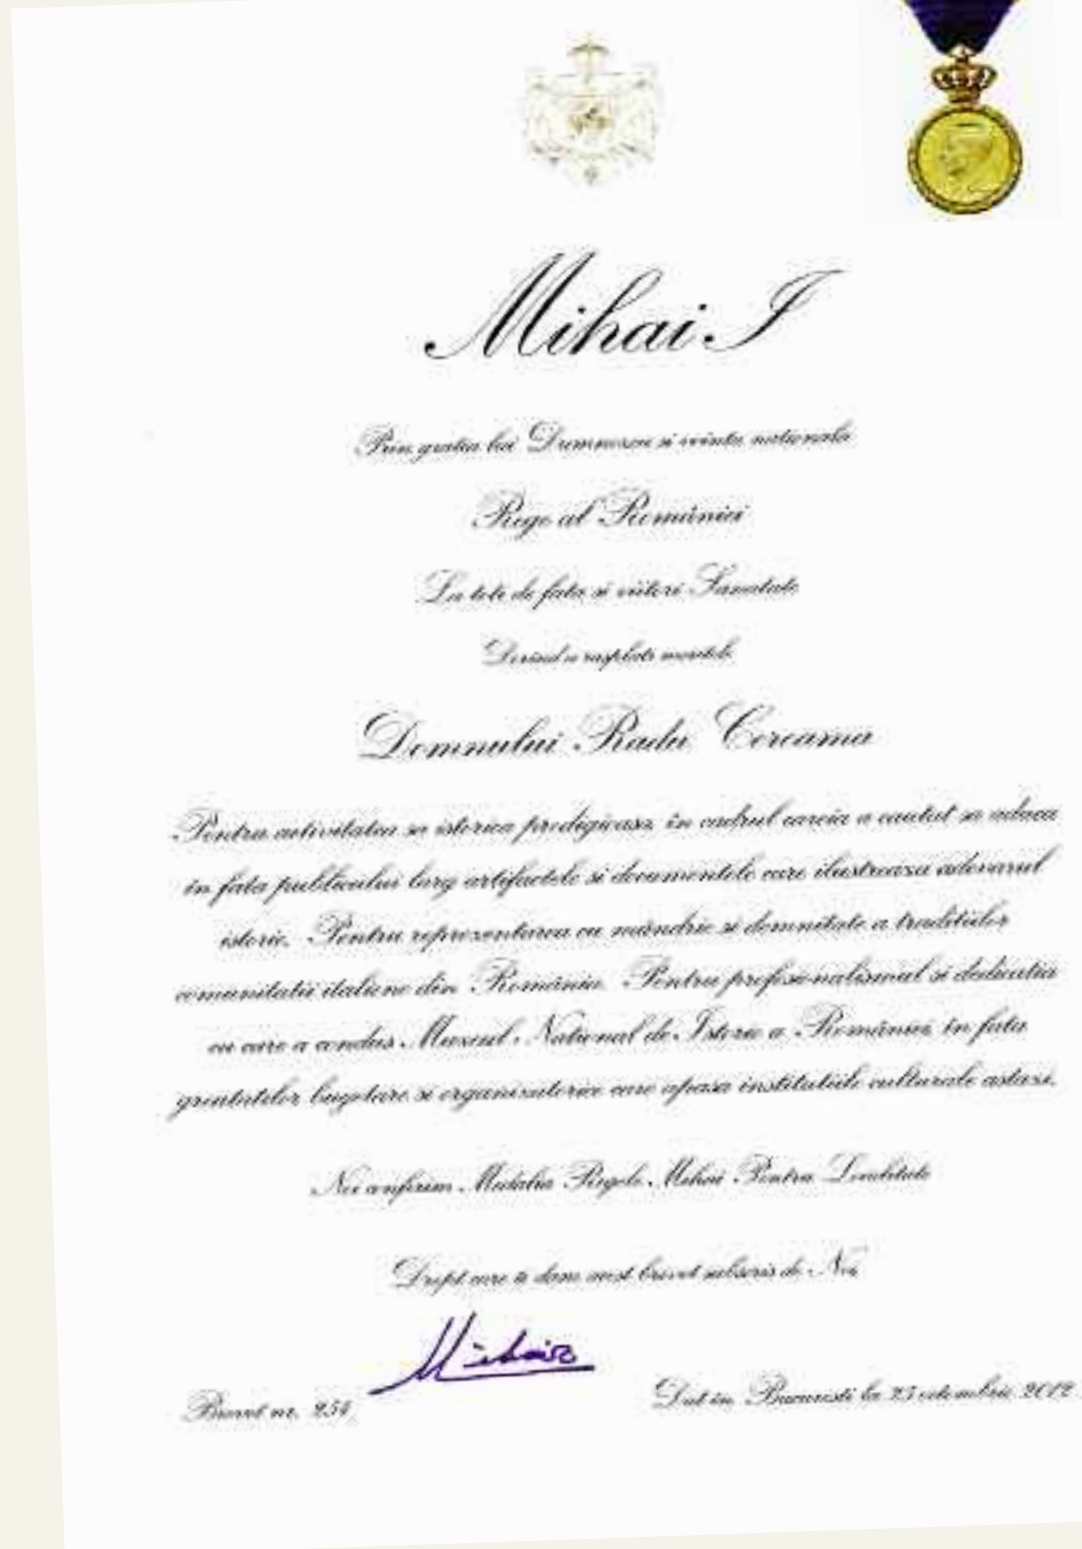 Mihai I
Prin gratia lui Dumnezeu si vointa nationala
Rege al României
La toti de fata si viitori Sanatate
Dorind a rasplati meritele
Domnului Radu Coroama
Pentru activitatea sa istorica prodigioasa, în cadrul careia a cautat sa aduca
în fata publicului larg artifactele si documentele care ilustreaza adevarul
istoric. Pentru reprezentarea cu mândrie si demnitate a traditiilor
comunitatii italiene din România. Pentru profesionalismul si dedicatia
cu care a condus Muzeul National de Istorie a României, în fata
greutatilor bugetare si organizatorice care apasa institutiile culturale astazi.
Noi conferim Medalia Regele Mihai Pentru Loialitate
Drept care îi dam acest brevet subscris de Noi
Mihai
Brevet nr. 254
Dat în Bucuresti la 25 octombrie 2012